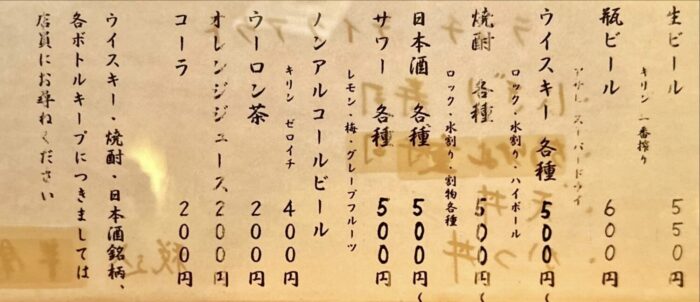 生ビール 550円
キリン 一番搾り
瓶ビール 600円
アサヒ スーパードライ
ウイスキー 各種 500円〜
ロック・水割り・ハイボール
焼酎 各種 500円〜
ロック・水割り・割物各種
日本酒 各種 500円〜
サワー 各種 500円
レモン・梅・グレープフルーツ
ノンアルコールビール 400円
キリン ゼロイチ
ウーロン茶 200円
オレンジジュース 200円
コーラ 200円
ウイスキー・焼酎・日本酒銘柄、
各ボトルキープにつきましては
店員にお尋ねください